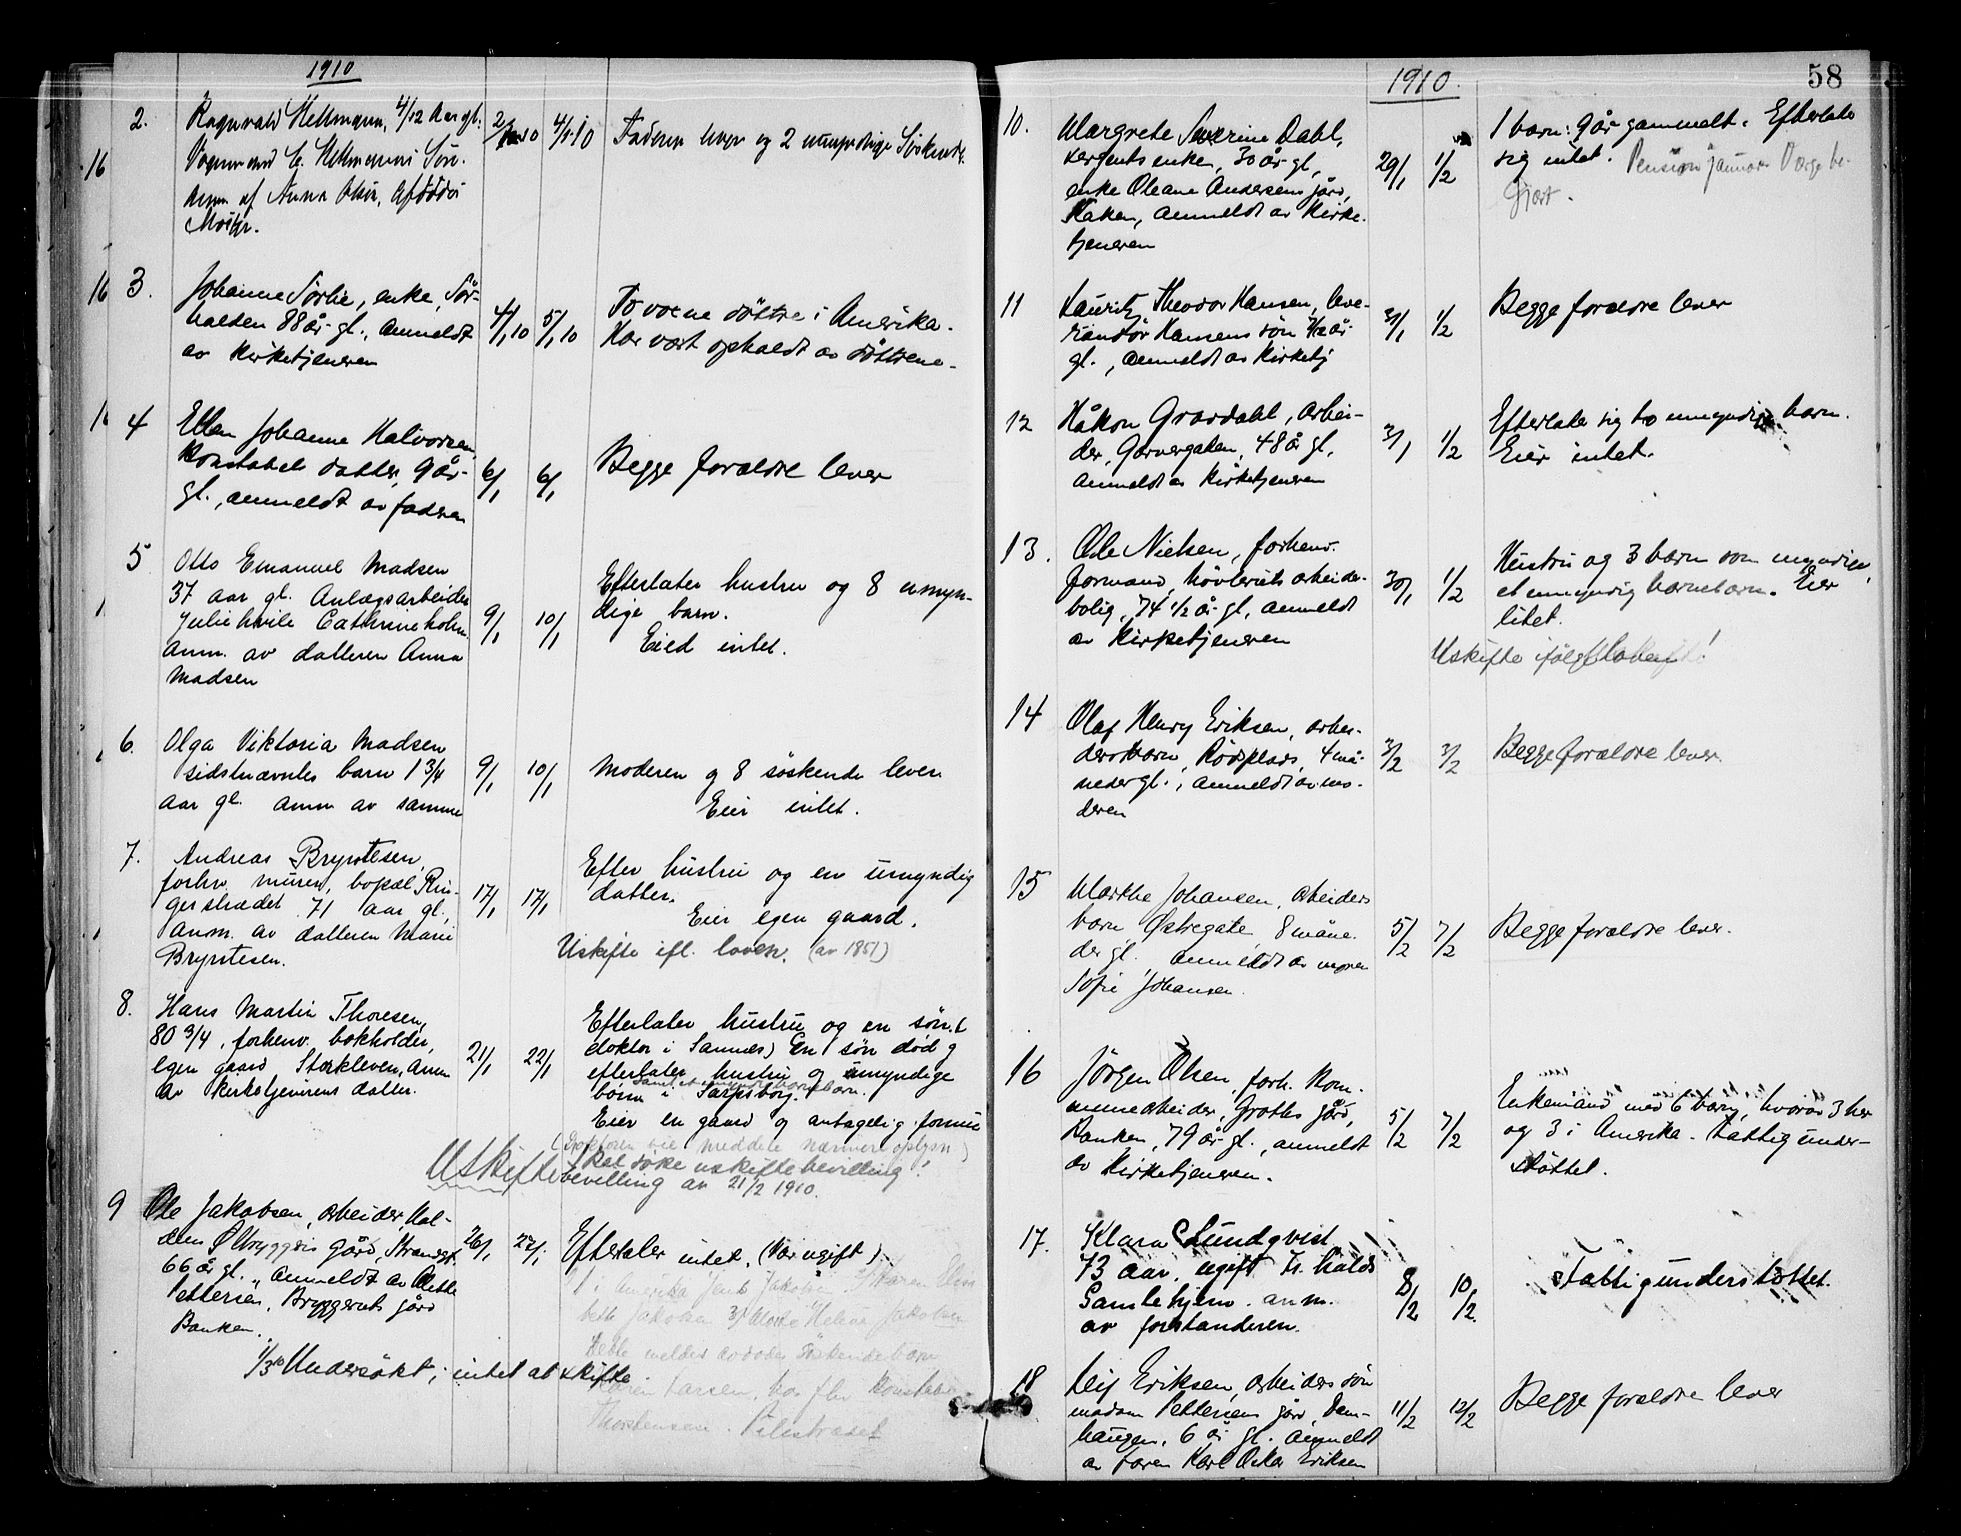 1910
2. Ragnvald Hellmann, 4/12 Aar gl. 2/1 10 4/1 10 Faderen lever og 2 umyndige Söskende.
16 Vognmand C. Hellmanns Sön.
anm. af Anna Olsen, Afdödes
Moster.
16 3. Johanne Sørlie, enke, Sør-
halden 88 år gl., anmeldt 4/1 10 5/1 10 To voxne döttre i Amerika.
av kirketjeneren Har vært opholdt av döttrene.
4 Ellen Johanne Halvorsen
Konstabels datter, 9 år 6/1 6/1 Begge forældre lever
gl., anmeldt av faderen
5 Otto Emanuel Madsen
37 aar gl. Anlægsarbeider Efterlater hustru og 8 umyn-
Juliehvile Cathrineholm. 9/1 10/1 dige barn.
anm. av datteren Anna Eied intet.
Madsen
6. Olga Viktoria Madsen
sidstnævntes barn 1 3/4 9/1 10/1 Moderen og 8 söskende lever
aar gl. anm av samme Eier intet.
7. Andreas Brynstesen, Efter hustru og en umyndig
forhv. murer, bopæl Rin- datter.
gerstrædet 71 aar gl., 17/1 17/1 Eier egen gaard.
anm. av datteren Marie Uskifte ifl. loven. (av 1851)
Brynstesen.
8. Hans Martin Thoresen, Efterlater hustru og en søn (
80 3/4, forhenv. bokholder, doktor i Sannes) En søn død og
egen gaard Storkleven, Anm 21/1 22/1 efterlater hustru og umyndige
av kirketjenerens datter. børn i Sarpsborg.
Eier en gaard og antagelig formue
(Doktoren vil meddele nærmere oplysn)
Skal søke uskiftebevilling!
Uskiftebevilling av 21/2 1910.
9 Ole Jakobsen, arbeider, Hal-
dens Ølbryggeris gård, Strandgt. 26/1 27/1 Efterlater intet. (Var ugift)
66 år gl. Anmeldt av
Pettersen, Bryggeriets gård
Banken.
1/3 10 Undersøkt; intet at skifte
Larsen, Konstabel
Thorstensen. Pilestrædet
1910. 58
10. Margrete Severine Dahl, 1 barn: 9 år gammelt. Efterlater
sergents enke, 30 år gl, 29/1 1/2 sig intet. Pension Januar Værge be-
enke Oleane Andersens gård, gjært.
Kaken, anmeldt av Kirke-
tjeneren
11 Lauritz Theodor Hansen, leve-
randør Hansens søn 7/12 år 31/1 1/2 Begge forældre lever
gl., anmeldt av kirketj
12 Håkon Gravdahl, arbei- Efterlater sig to umyndige barn.
der, Garvergaten, 48 år gl, 31/1 1/2 Eier intet.
anmeldt av kirketjeneren
13. Ole Nielsen, forhenv. Hustru og 3 barn som myndige,
formand, høvleriets arbeider- 30/1 1/2 et umyndig barnebarn. Eier
bolig, 74 1/2 år gl, anmeldt litet.
av kirketjeneren Uskifte ifølge loven!
14 Olaf Henry Eriksen, arbei-
ders barn, Rødsplads, 4 må- 3/2 3/2 Begge forældre lever.
neder gl., anmeldt av mo-
deren
15 Marthe Johansen, arbeiders
barn Østregate, 8 måne- 5/2 7/2 Begge forældre lever.
der gl. anmeldt av moren
Sofie Johansen.
16 Jörgen Olsen, forh. kom- Enkemand med 6 barn, hvorav 3 her
munearbeider, Groths gård, 5/2 7/2 og 3 i Amerika. Fattigunder-
Banken, 79 år gl., anmeldt støttet.
av kirketjeneren.
17. Klara Lundqvist
73 aar, ugift Fr. Halds 8/2 10/2 Fattigunderstøttet.
Gamlehjem. anm.
av forstanderen.
18 Leif Eriksen, arbeiders søn
madam Pettersens gård, Dam- 11/2 12/2 Begge forældre lever
haugen, 6 år gl. anmeldt
av faren Karl Oskar Eriksen